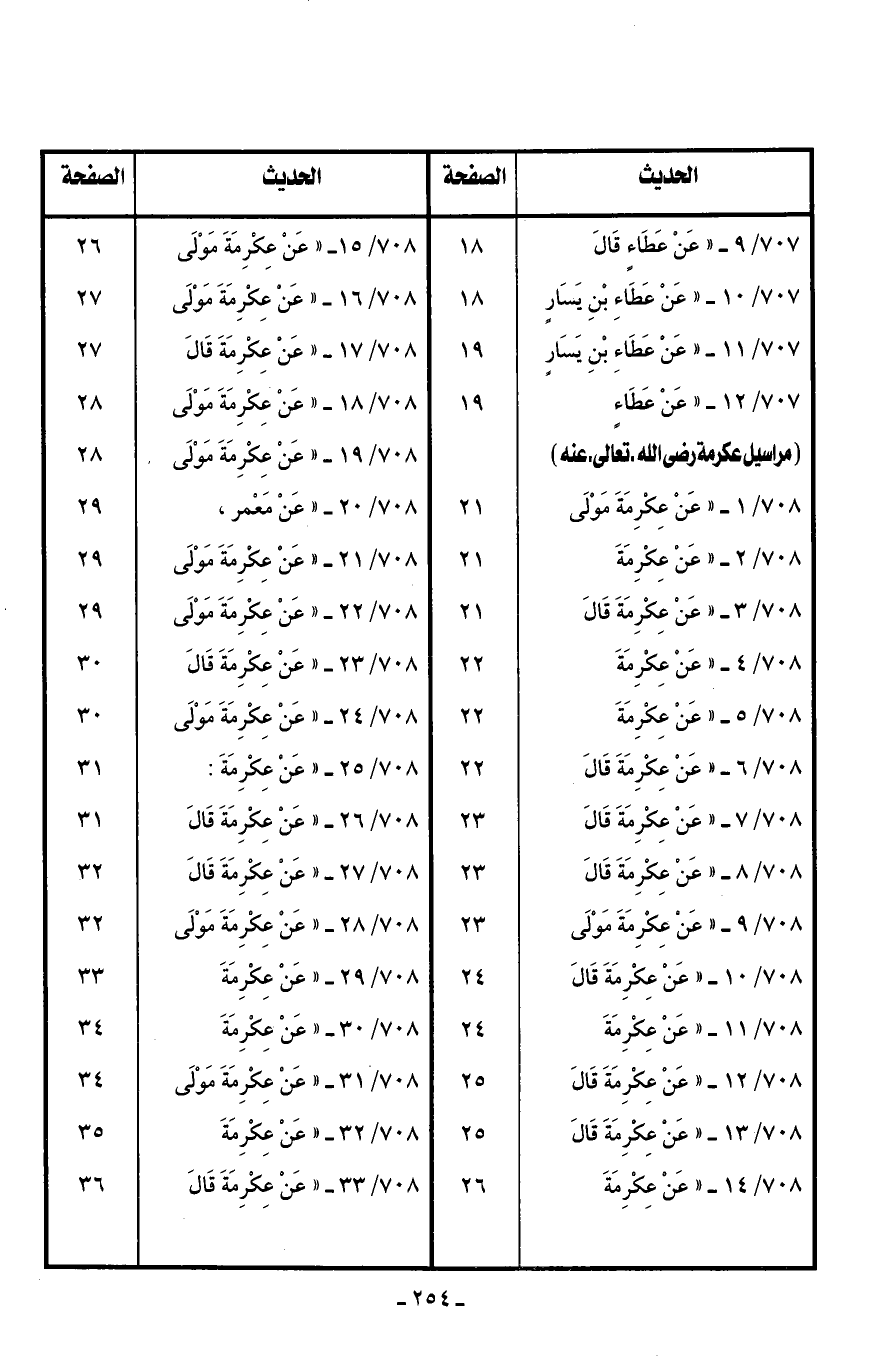 الحديث الصفحة الحديث الصفحة
٩/٧٠٧ ـ « عَنْ عَطَاءٍ قَالَ ١٨ ١٥/٧٠٨ـ « عَنْ عِكْرِمَةَ مَوْلَى ٢٦
١٠/٧٠٧ ـ « عَنْ عَطَاءِ بْنِ يَسَارٍ ١٨ ١٦/٧٠٨ ـ « عَنْ عِكْرِمَةَ مَوْلَى ٢٧
١١/٧٠٧ ـ « عَنْ عَطَاءِ بْنِ يَسَارٍ ١٩ ١٧/٧٠٨ ـ « عَنْ عِكْرِمَةَ قَالَ ٢٧
١٢/٧٠٧ ـ « عَنْ عَطَاءٍ ١٩ ١٨/٧٠٨ ـ « عَنْ عِكْرِمَةَ مَوْلَى ٢٨
(مراسيل عكرمة رضى الله . تعالى . عنه) ١٩/٧٠٨ ـ « عَنْ عِكْرِمَةَ مَوْلَى ٢٨
١/٧٠٨ ـ « عَنْ عِكْرِمَةَ مَوْلَى ٢١ ٢٠/٧٠٨ ـ « عَنْ مَعْمَرٍ ، ٢٩
٢/٧٠٨ ـ « عَنْ عِكْرِمَةَ ٢١ ٢١/٧٠٨ ـ « عَنْ عِكْرِمَةَ مَوْلَى ٢٩
٣/٧٠٨ ـ « عَنْ عِكْرِمَةَ قَالَ ٢١ ٢٢/٧٠٨ ـ « عَنْ عِكْرِمَةَ مَوْلَى ٢٩
٤/٧٠٨ ـ « عَنْ عِكْرِمَةَ ٢٢ ٢٣/٧٠٨ ـ « عَنْ عِكْرِمَةَ قَالَ ٣٠
٥/٧٠٨ ـ « عَنْ عِكْرِمَةَ ٢٢ ٢٤/٧٠٨ ـ « عَنْ عِكْرِمَةَ مَوْلَى ٣٠
٦/٧٠٨ ـ « عَنْ عِكْرِمَةَ قَالَ ٢٢ ٢٥/٧٠٨ ـ « عَنْ عِكْرِمَةَ : ٣١
٧/٧٠٨ ـ « عَنْ عِكْرِمَةَ قَالَ ٢٣ ٢٦/٧٠٨ ـ « عَنْ عِكْرِمَةَ قَالَ ٣١
٨/٧٠٨ ـ « عَنْ عِكْرِمَةَ قَالَ ٢٣ ٢٧/٧٠٨ ـ « عَنْ عِكْرِمَةَ قَالَ ٣٢
٩/٧٠٨ ـ « عَنْ عِكْرِمَةَ مَوْلَى ٢٣ ٢٨/٧٠٨ ـ « عَنْ عِكْرِمَةَ مَوْلَى ٣٢
١٠/٧٠٨ ـ « عَنْ عِكْرِمَةَ قَالَ ٢٤ ٢٩/٧٠٨ ـ « عَنْ عِكْرِمَةَ ٣٣
١١/٧٠٨ ـ « عَنْ عِكْرِمَةَ ٢٤ ٣٠/٧٠٨ ـ « عَنْ عِكْرِمَةَ ٣٤
١٢/٧٠٨ ـ « عَنْ عِكْرِمَةَ قَالَ ٢٥ ٣١/٧٠٨ ـ « عَنْ عِكْرِمَةَ مَوْلَى ٣٤
١٣/٧٠٨ ـ « عَنْ عِكْرِمَةَ قَالَ ٢٥ ٣٢/٧٠٨ ـ « عَنْ عِكْرِمَةَ ٣٥
١٤/٧٠٨ ـ « عَنْ عِكْرِمَةَ ٢٦ ٣٣/٧٠٨ ـ « عَنْ عِكْرِمَةَ قَالَ ٣٦
ـ ٢٥٤ ـ